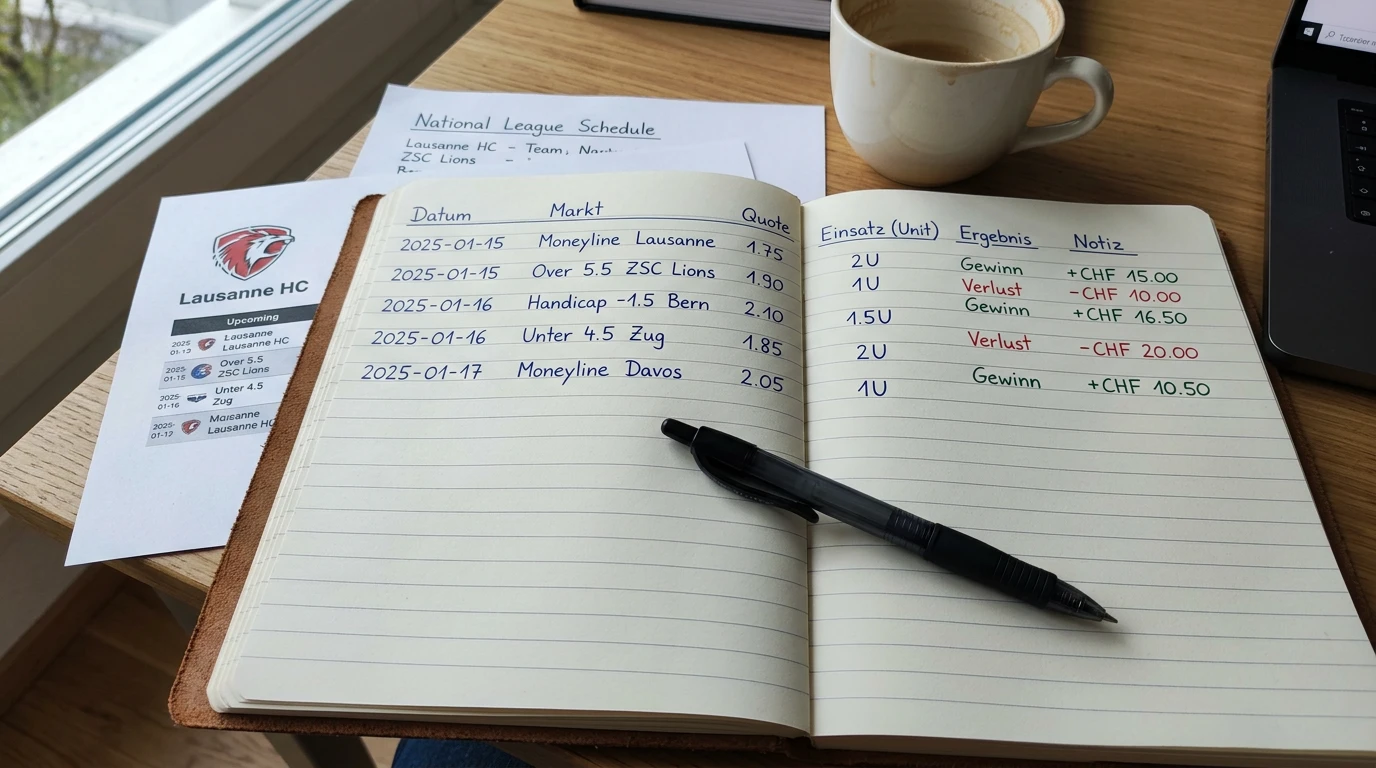 National League Schedule
Lausanne HC - Team,
ZSC Lions -
Lausanne HC
Upcoming
2025 01-13 Lausanne Lausanne HC
2025- 01-15 Over 5.5 ZSC Lions
2025- 01-16 Unter 4.5 Zug
2025- 01-12 Lausanne HC
Datum Markt Quote Einsatz (Unit) Ergebnis Notiz
2025-01-15 Moneyline Lausanne 1.75 2U Gewinn +CHF 15.00
2025-01-15 Over 5.5 ZSC Lions 1.90 1U Verlust -CHF 10.00
2025-01-16 Handicap -1.5 Bern 2.10 1.5U Gewinn +CHF 16.50
2025-01-16 Unter 4.5 Zug 1.85 2U Verlust -CHF 20.00
2025-01-17 Moneyline Davos 2.05 1U Gewinn +CHF 10.50